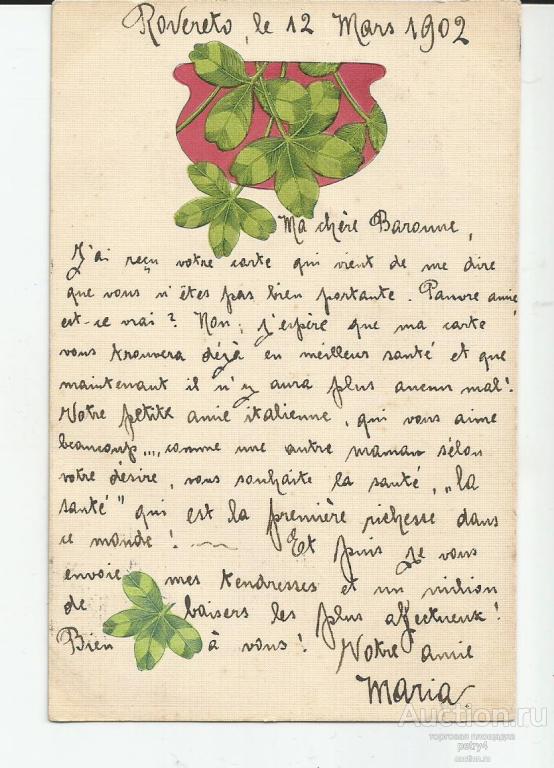 Rovereto, le 12 Mars 1902
Ma chère Baronne,
J'ai reçu votre carte qui vient de me dire
que vous n'êtes pas bien portante. Pauvre amie,
est-ce vrai? Non; j'espère que ma carte
vous trouvera déjà en meilleur santé et que
maintenant il n'y aura plus aucun mal!
Votre petite amie italienne, qui vous aime
beaucoup..., comme une autre maman sélon
votre désire, vous souhaite la santé, „la
santé" qui est la première richesse dans
ce monde! Et puis je vous
envoie mes tendresses et un million
de baisers les plus affectueux!
Bien à vous! Votre amie
Maria.
Auction.ru
торговая площадка
petry4
auction.ru